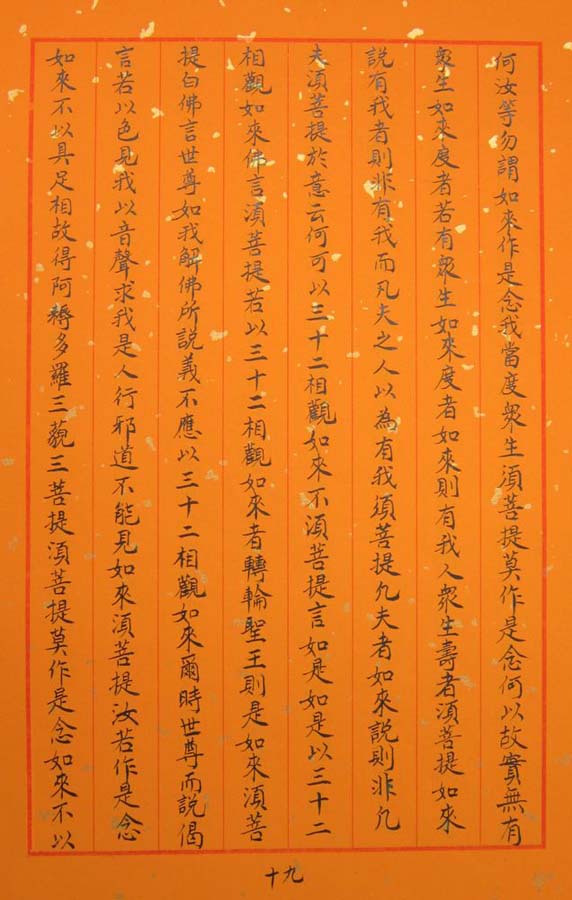 何汝等勿謂如來作是念我當度眾生須菩提莫作是念何以故實無有
眾生如來度者若有眾生如來度者如來則有我人眾生壽者須菩提如來
說有我者則非有我而凡夫之人以為有我須菩提凡夫者如來說則非凡
夫須菩提於意云何可以三十二相觀如來不須菩提言如是如是以三十二
相觀如來佛言須菩提若以三十二相觀如來者轉輪聖王則是如來須菩
提白佛言世尊如我解佛所說義不應以三十二相觀如來爾時世尊而說偈
言若以色見我以音聲求我是人行邪道不能見如來須菩提汝若作是念
如來不以具足相故得阿耨多羅三藐三菩提須菩提莫作是念如來不以
十九